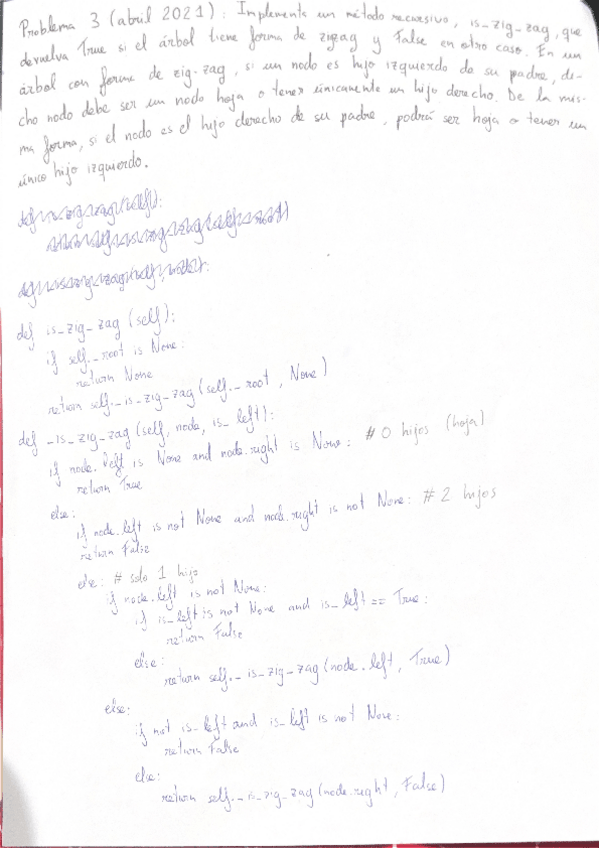 Problema 3 (abril 2021): Implementa un método recursivo, is_zig_zag, que
devuelva True si el árbol tiene forma de zigzag y False en otro caso. En un
árbol con forma de zig-zag, si un nodo es hijo izquierdo de su padre, di-
cho nodo debe ser un nodo hoja o tener únicamente un hijo derecho. De la mis-
ma forma, si el nodo es el hijo derecho de su padre, podrá ser hoja o tener un
único hijo izquierdo.
def is_zig_zag (self):
if self._root is None:
return None
return self._is_zig_zag (self._root, None)
def _is_zig_zag (self, node, is_left):
if node.left is None and node.right is None: # 0 hijos (hoja)
return True
else:
if node.left is not None and node.right is not None: # 2 hijos
return False
else: # solo 1 hijo
if node.left is not None:
if is_left is not None and is_left == True:
return False
else:
return self._is_zig_zag (node.left, True)
else:
if not is_left and is_left is not None:
return False
else:
return self._is_zig_zag (node.right, False)